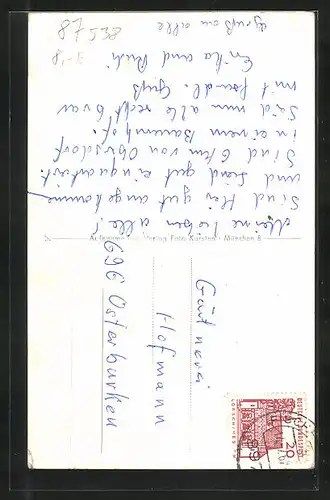 87538
8.-9.
Meine lieben alle!
Sind hier gut angekomme
und sind gut einquartiert.
Sind 6 km von Obersdorf
in einem Bauernhof.
Seid nun alle recht brav
mit freundl. Gruß
Erika und Rudi
Gruß an alle
Verlag Foto Kürsten · München 8
Gärtnerei
Hofmann
696 Osterburken
20
DEUTSCHE BUNDESPOST
899